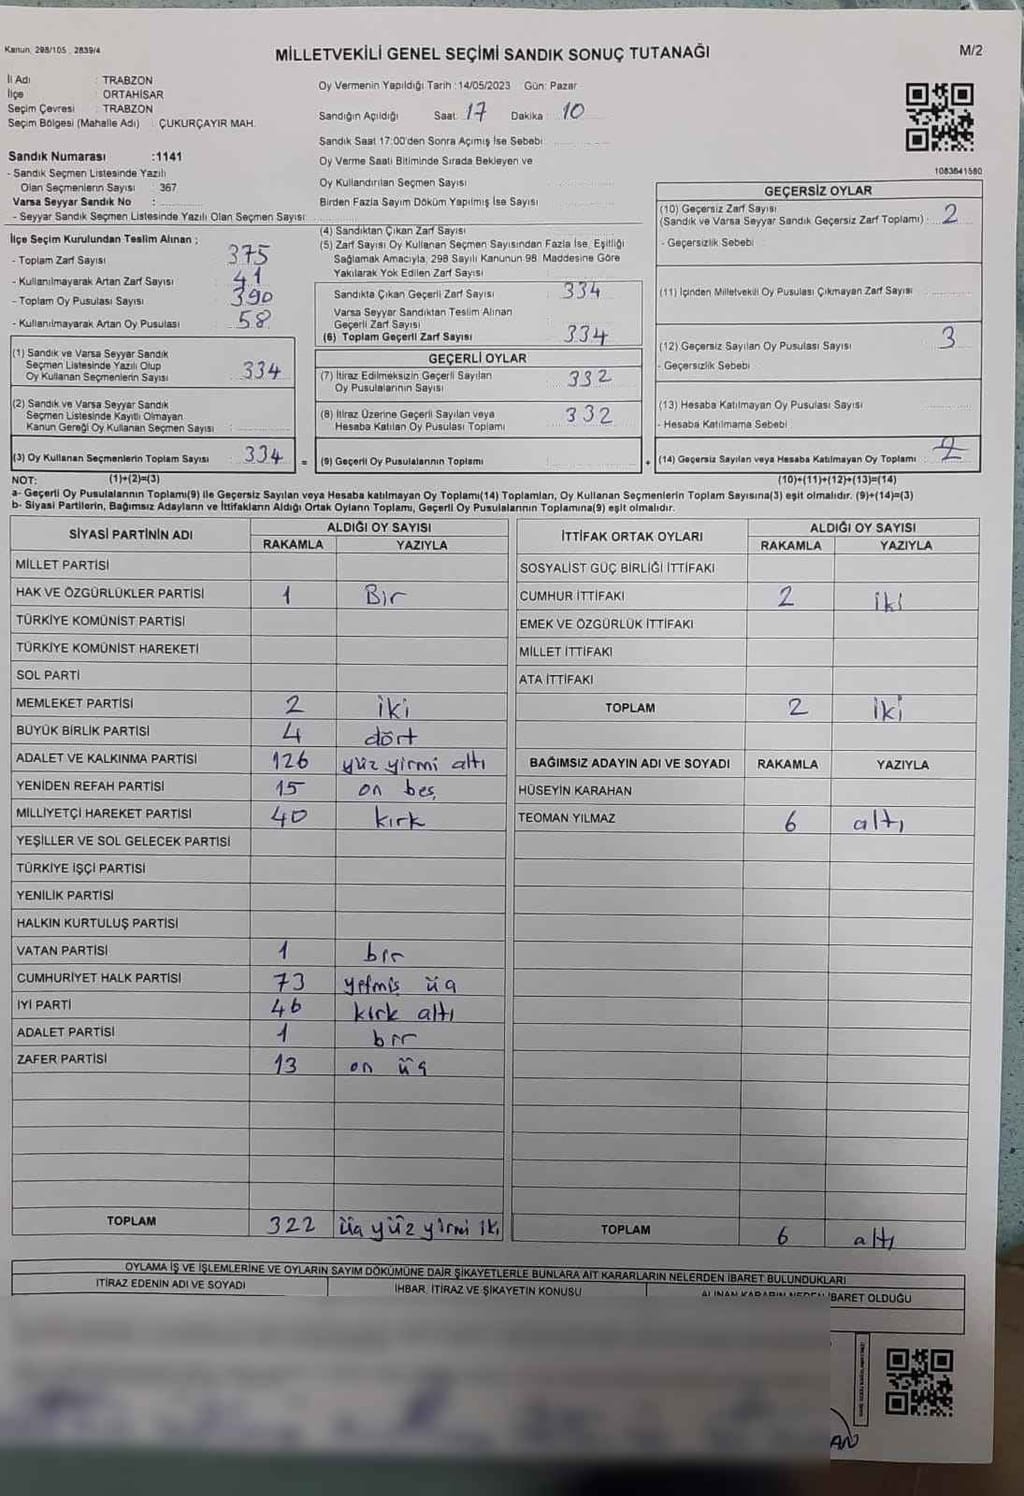 Kanun, 298/105 , 2839/4
MİLLETVEKİLİ GENEL SEÇİMİ SANDIK SONUÇ TUTANAĞI
M/2
İl Adı : TRABZON
İlçe : ORTAHİSAR
Seçim Çevresi : TRABZON
Seçim Bölgesi (Mahalle Adı) : ÇUKURÇAYIR MAH.
Sandık Numarası :1141
- Sandık Seçmen Listesinde Yazılı
Olan Seçmenlerin Sayısı : 367
Varsa Seyyar Sandık No :
- Seyyar Sandık Seçmen Listesinde Yazılı Olan Seçmen Sayısı:
Oy Vermenin Yapıldığı Tarih :14/05/2023 Gün: Pazar
Sandığın Açıldığı Saat: 17 Dakika : 10
Sandık Saat 17:00'den Sonra Açımış İse Sebebi
Oy Verme Saati Bitiminde Sırada Bekleyen ve
Oy Kullandırılan Seçmen Sayısı
Birden Fazla Sayım Döküm Yapılmış İse Sayısı
1083641580
İlçe Seçim Kurulundan Teslim Alınan ;
- Toplam Zarf Sayısı 375
- Kullanılmayarak Artan Zarf Sayısı 41
- Toplam Oy Pusulası Sayısı 390
- Kullanılmayarak Artan Oy Pusulası 58
(1) Sandık ve Varsa Seyyar Sandık
Seçmen Listesinde Yazılı Olup
Oy Kullanan Seçmenlerin Sayısı 334
(2) Sandık ve Varsa Seyyar Sandık
Seçmen Listesinde Kayıtlı Olmayan
Kanun Gereği Oy Kullanan Seçmen Sayısı :
(3) Oy Kullanan Seçmenlerin Toplam Sayısı 334 =
(4) Sandıktan Çıkan Zarf Sayısı
(5) Zarf Sayısı Oy Kullanan Seçmen Sayısından Fazla İse, Eşitliği
Sağlamak Amacıyla, 298 Sayılı Kanunun 98. Maddesine Göre
Yakılarak Yok Edilen Zarf Sayısı
Sandıkta Çıkan Geçerli Zarf Sayısı 334
Varsa Seyyar Sandıktan Teslim Alınan
Geçerli Zarf Sayısı
(6) Toplam Geçerli Zarf Sayısı 334
GEÇERLİ OYLAR
(7) İtiraz Edilmeksizin Geçerli Sayılan
Oy Pusulalarının Sayısı 332
(8) İtiraz Üzerine Geçerli Sayılan veya
Hesaba Katılan Oy Pusulası Toplamı 332
(9) Geçerli Oy Pusulalarının Toplamı +
GEÇERSİZ OYLAR
(10) Geçersiz Zarf Sayısı
(Sandık ve Varsa Seyyar Sandık Geçersiz Zarf Toplamı) : 2
- Geçersizlik Sebebi
(11) İçinden Milletvekili Oy Pusulası Çıkmayan Zarf Sayısı
(12) Geçersiz Sayılan Oy Pusulası Sayısı 3
- Geçersizlik Sebebi
(13) Hesaba Katılmayan Oy Pusulası Sayısı
- Hesaba Katılmama Sebebi
(14) Geçersiz Sayılan veya Hesaba Katılmayan Oy Toplamı
NOT: (1)+(2)=(3) (10)+(11)+(12)+(13)=(14)
a- Geçerli Oy Pusulalarının Toplamı(9) ile Geçersiz Sayılan veya Hesaba katılmayan Oy Toplamı(14) Toplamları, Oy Kullanan Seçmenlerin Toplam Sayısına(3) eşit olmalıdır. (9)+(14)=(3)
b- Siyasi Partilerin, Bağımsız Adayların ve İttifakların Aldığı Ortak Oyların Toplamı, Geçerli Oy Pusulalarının Toplamına(9) eşit olmalıdır.
SİYASİ PARTİNİN ADI ALDIĞI OY SAYISI
RAKAMLA YAZIYLA
MİLLET PARTİSİ
HAK VE ÖZGÜRLÜKLER PARTİSİ 1 Bir
TÜRKİYE KOMÜNİST PARTİSİ
TÜRKİYE KOMÜNİST HAREKETİ
SOL PARTİ
MEMLEKET PARTİSİ 2 iki
BÜYÜK BİRLİK PARTİSİ 4 dört
ADALET VE KALKINMA PARTİSİ 126 yüz yirmi altı
YENİDEN REFAH PARTİSİ 15 on beş
MİLLİYETÇİ HAREKET PARTİSİ 40 kırk
YEŞİLLER VE SOL GELECEK PARTİSİ
TÜRKİYE İŞÇİ PARTİSİ
YENİLİK PARTİSİ
HALKIN KURTULUŞ PARTİSİ
VATAN PARTİSİ 1 bir
CUMHURİYET HALK PARTİSİ 73 yetmiş üç
İYİ PARTİ 46 kırk altı
ADALET PARTİSİ 1 bir
ZAFER PARTİSİ 13 on üç
TOPLAM 322 üç yüz yirmi iki
İTTİFAK ORTAK OYLARI ALDIĞI OY SAYISI
RAKAMLA YAZIYLA
SOSYALİST GÜÇ BİRLİĞİ İTTİFAKI
CUMHUR İTTİFAKI 2 iki
EMEK VE ÖZGÜRLÜK İTTİFAKI
MİLLET İTTİFAKI
ATA İTTİFAKI
TOPLAM 2 iki
BAĞIMSIZ ADAYIN ADI VE SOYADI RAKAMLA YAZIYLA
HÜSEYİN KARAHAN
TEOMAN YILMAZ 6 altı
TOPLAM 6 altı
OYLAMA İŞ VE İŞLEMLERİNE VE OYLARIN SAYIM DÖKÜMÜNE DAİR ŞİKAYETLERLE BUNLARA AİT KARARLARIN NELERDEN İBARET BULUNDUKLARI
İTİRAZ EDENİN ADI VE SOYADI İHBAR, İTİRAZ VE ŞİKAYETİN KONUSU ALINAN KARARIN NEDEN İBARET OLDUĞU